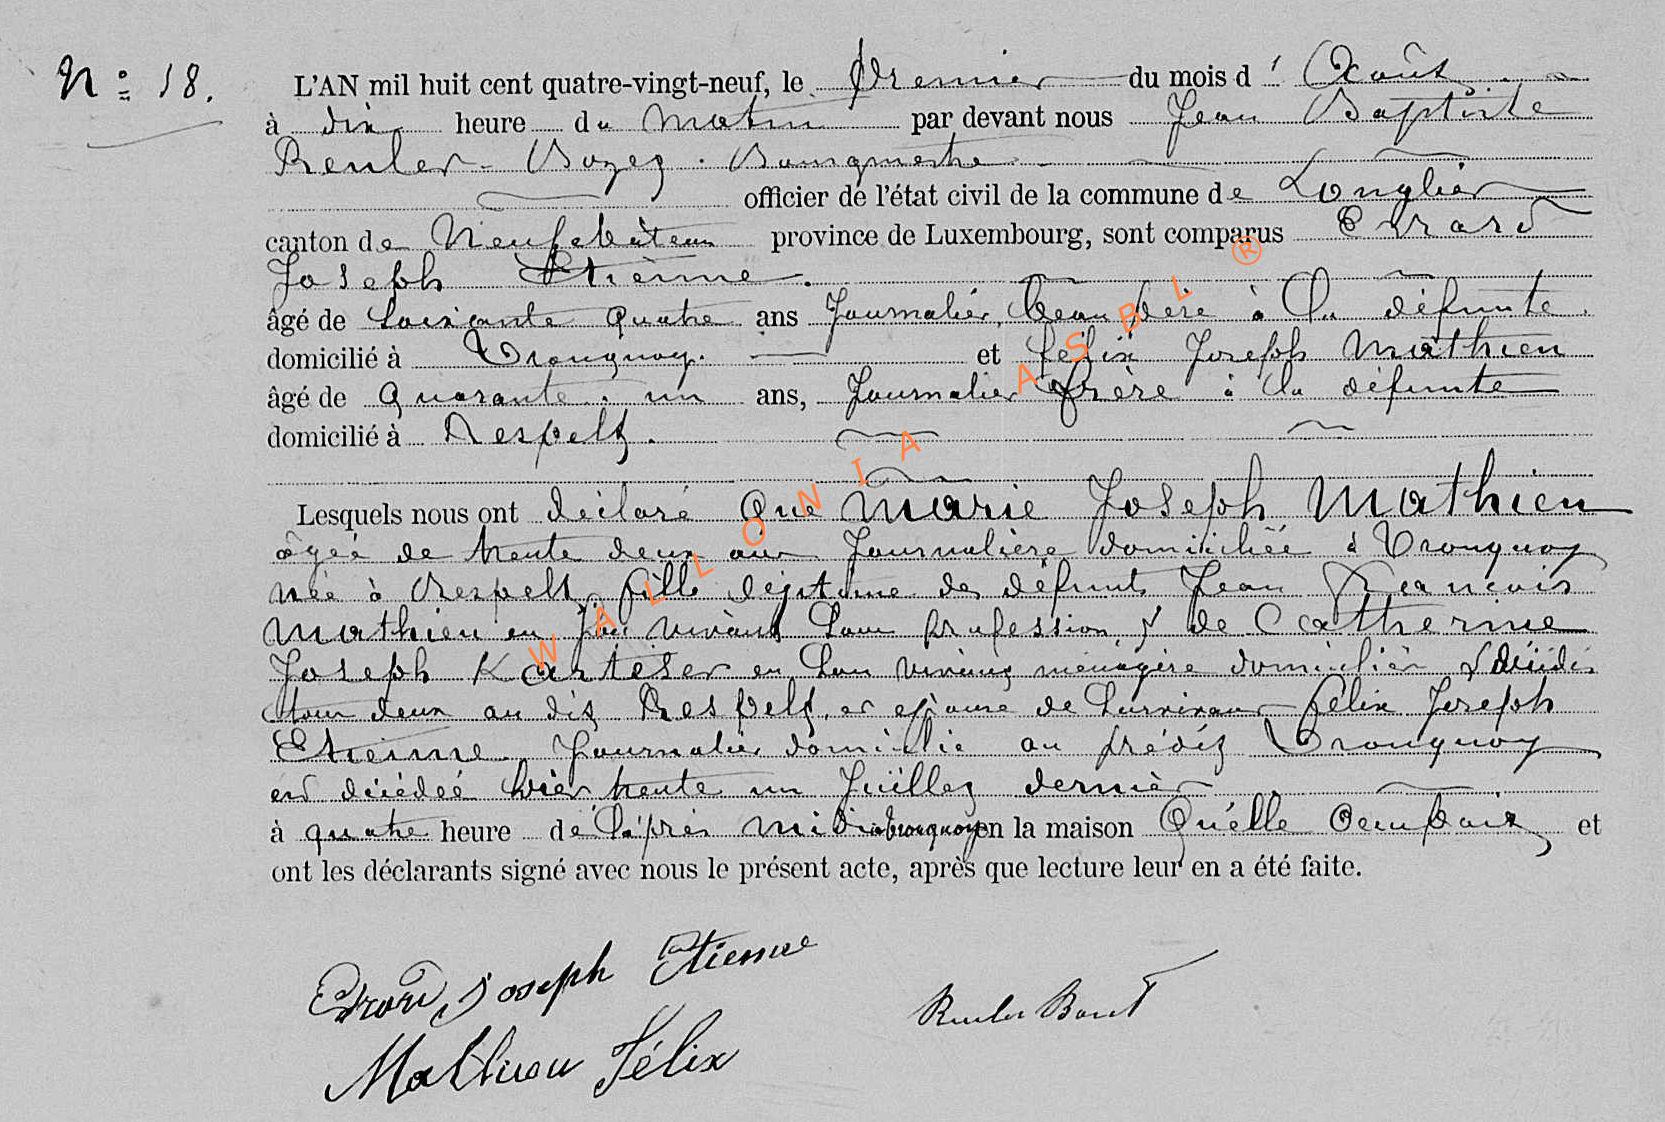 N° 18.
L'AN mil huit cent quatre-vingt-neuf, le premier du mois d' Août
à dix heure du matin par devant nous Jean Baptiste
Renler Bozez Bourgmestre
officier de l'état civil de la commune de Longlier
canton de Neufchâteau province de Luxembourg, sont comparus Erard
Joseph Etiènne.
âgé de soixante quatre ans Journalier, beau père à la défunte.
domicilié à Tronquoy. et félix Joseph Mathieu
âgé de quarante un ans, Journalier frère à la défunte
domicilié à Respelt.
Lesquels nous ont déclaré que Marie Joseph Mathieu
agée de trente deux ans Journalière domiciliée à Tronquoy
née à Respelt, fille légitime des défunts Jean François
Mathieu en son vivant sans profession, & de Catherine
Joseph Karteser en son vivant ménagère domiciliés & décédés
tous deux au dit Respelt, et épouse de survivant félix Joseph
Etienne Journalier domicilié au prédit Tronquoy
est décédée hier trente un Juillet dernier
à quatre heure de l'après midi à Tronquoy en la maison qu'elle occupait et
ont les déclarants signé avec nous le présent acte, après que lecture leur en a été faite.
Erard Joseph Etienne
Mathieu Félix
WALLONIA ASBL ®